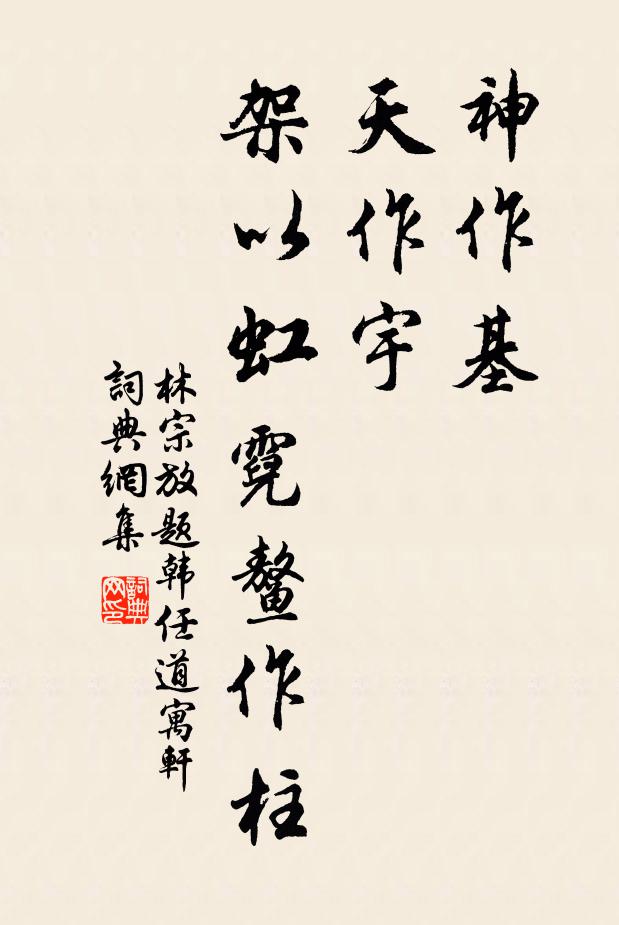 神作基
天作宇
架以虹霓鼇作柱
林宗放题韩任道寓軒
詞典網集
詞典网印